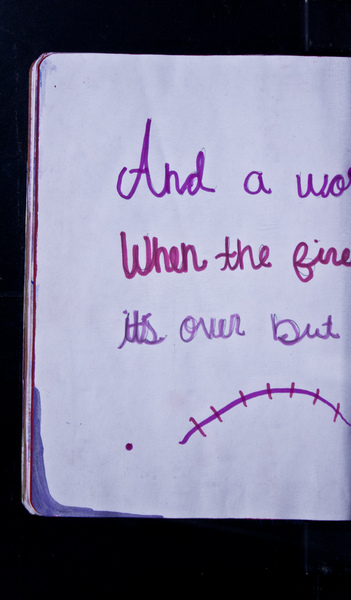 And a
When the fire
it's over but